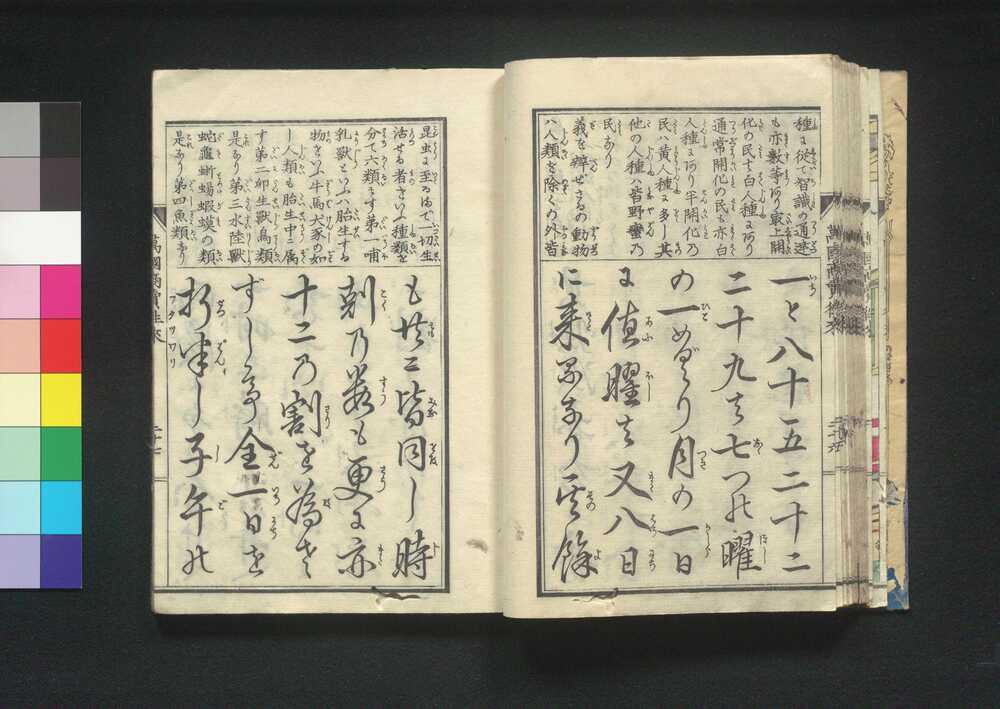 種に従て智識の通逮
も亦数等あり最上開
化の民ハ白人種にあり
通常開化の民も亦白
人種にあり半開化の
民ハ黄人種に多し其
他の人種ハ皆野蠻の
民あり
義を辨ぜざるの動物
ハ人類を除くの外皆
一と八十五二十二
二十九ハ七つの曜
の一めぐり月の一日
に值曜ハ又八日
に来るなり其餘
昆虫に至るまで一切生
活せる者をいふ種類を
分て六類とす第一哺
乳獣といふハ胎生する
物をいふ牛馬犬豕の如
し人類も胎生中に属
す第二卵生獣鳥類
是なり第三水陸獣
蛇龜蜥蜴蝦蟆の類
是なり第四魚類あり
も共に皆同し時
刻乃数も更に亦
十二乃割を為さ
ずして全一日を
折半し子午の
フタツワリ
萬國商賣往來
二十七